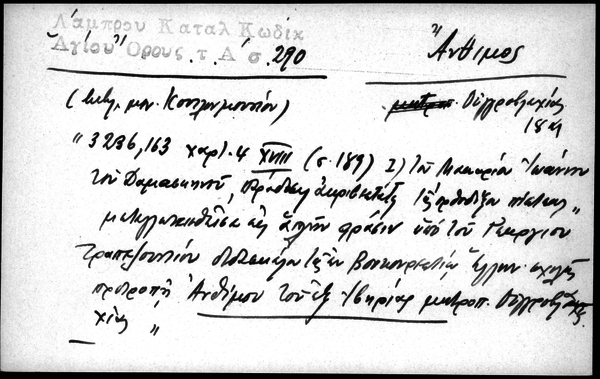 Λάμπρου Καταλ Κωδικ
Ἁγίου Ὄρους τ. Α σ. 290
Ἄνθιμος
(βιβλ. μον. Κουτλουμουσίου)
μητρ. Οὐγγροβλαχίας
"3236,163 χαρτ. 4 XVIII (σ. 189) 2) Τοῦ Μακαρίου Ἰωάννου
τοῦ Δαμασκηνοῦ, ἔκδοσις ἀκριβεστάτη τῆς ὀρθοδόξου πίστεως
μεταγλωττισθεῖσα εἰς ἁπλῆν φράσιν ὑπὸ τοῦ Γεωργίου
Τραπεζουντίου διδασκάλου τῆς ἐν Βουκουρεστίῳ ἑλλην. σχολῆς
προτροπῇ Ἀνθίμου τοῦ ἐξ Ἰβηρίας μητροπ. Οὐγγροβλα
χίας "